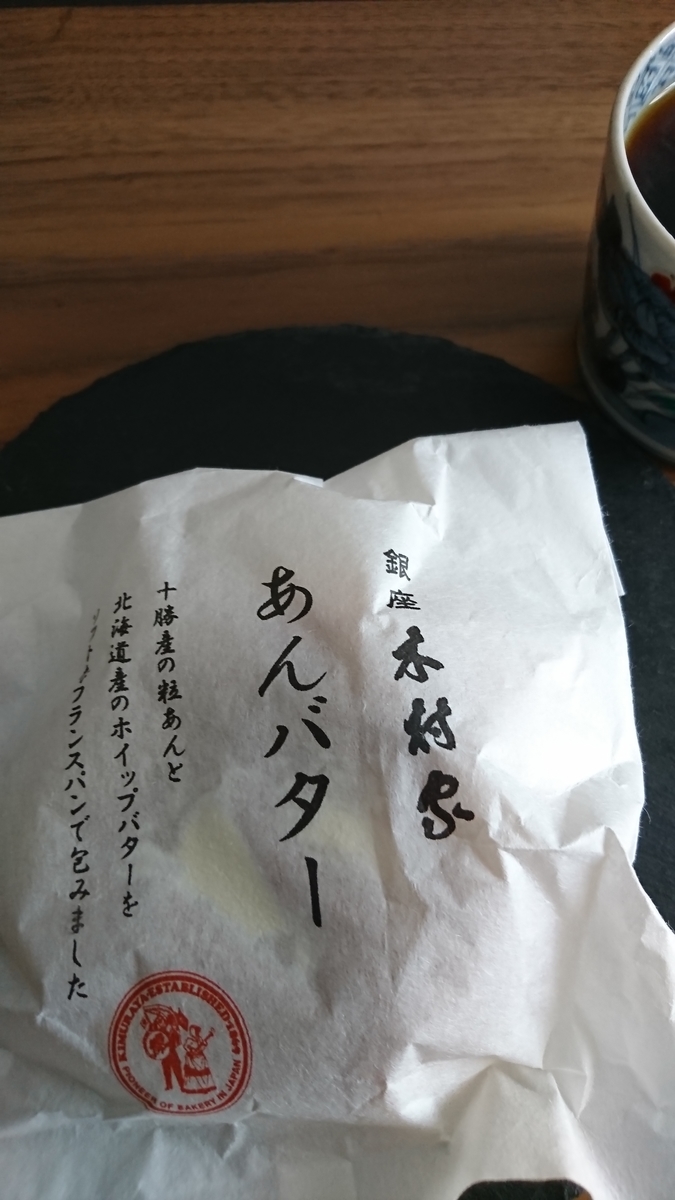 銀座 木村家
あんバター
十勝産の粒あんと
北海道産のホイップバターを
フランスパンで包みました
KIMURAYA・ESTABLISHED・1869
PIONEER OF BAKERY IN JAPAN